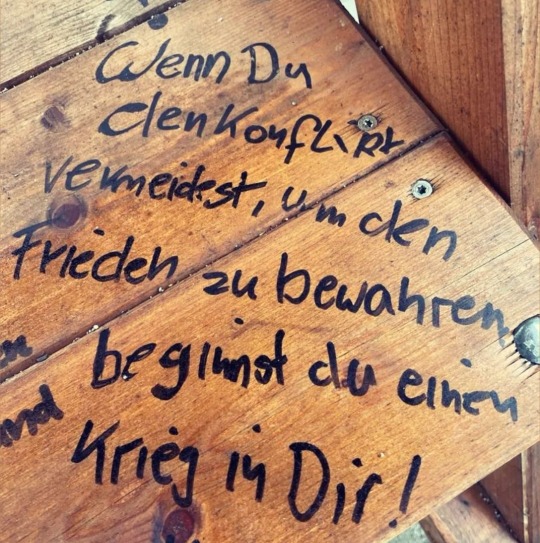 Wenn Du
den Konflikt
vermeidest, um den
Frieden zu bewahren,
beginnst du einen
Krieg in Dir!